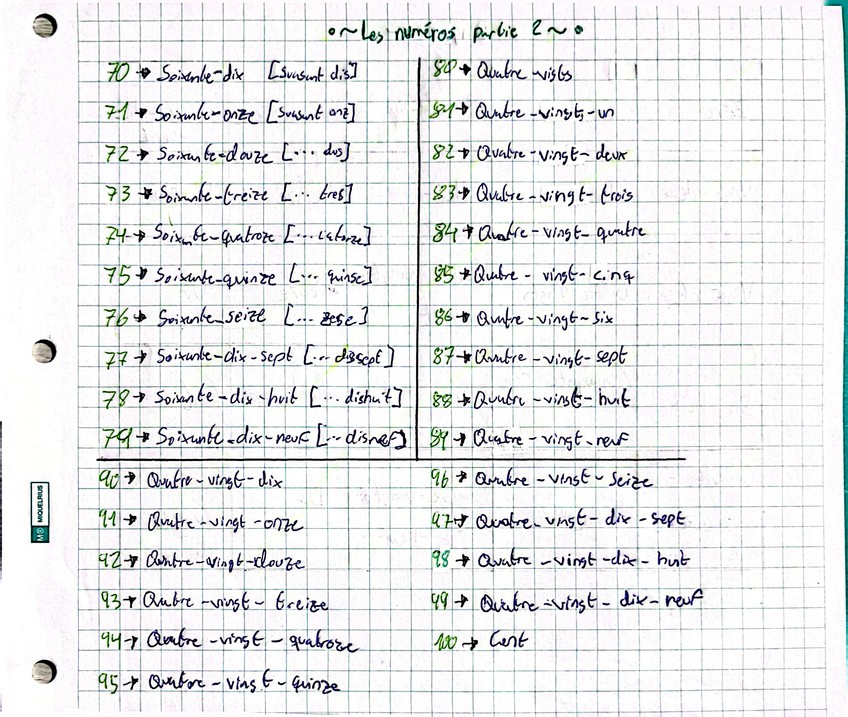 Les numéros partie 2
70 → Soixante-dix [suasant dis]
71 → Soixante-onze [suasant onz]
72 → Soixante-douze [... dus]
73 → Soixante-treize [... tres]
74 → Soixante-quatroze [... catorze]
75 → Soixante-quinze [... quinse]
76 → Soixante_seize [... zese]
77 → Soixante-dix-sept [... dissept]
78 → Soixante-dix-huit [... dishuit]
79 → Soixante-dix-neuf [... disnef]
80 → Quatre-vists
81 → Quatre-vingt-un
82 → Quatre-vingt-deux
83 → Quatre-vingt-trois
84 → Quatre-vingt-quatre
85 → Quatre-vingt-cinq
86 → Quatre-vingt-six
87 → Quatre-vingt-sept
88 → Quatre-vingt-huit
89 → Quatre-vingt-neuf
90 → Quatre-vingt-dix
91 → Quatre-vingt-onze
92 → Quatre-vingt-douze
93 → Quatre-vingt-treize
94 → Quatre-vingt-quatroze
95 → Quatore-vingt-quinze
96 → Quatre-vingt-seize
97 → Quatre-vingt-dix-sept
98 → Quatre-vingt-dix-huit
99 → Quatre-vingt-dix-neuf
100 → Cent
MIQUELRIUS